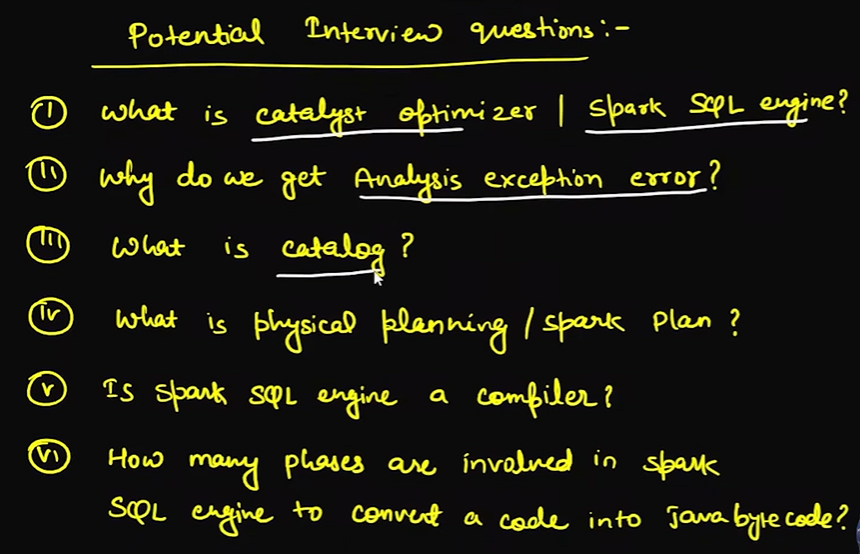 Potential Interview questions:-
(i) What is catalyst optimizer | Spark SQL engine?
(ii) Why do we get Analysis exception error?
(iii) What is catalog?
(iv) What is physical planning/spark plan?
(v) Is spark SQL engine a compiler?
(vi) How many phases are involved in spark
SQL engine to convert a code into java bytecode?